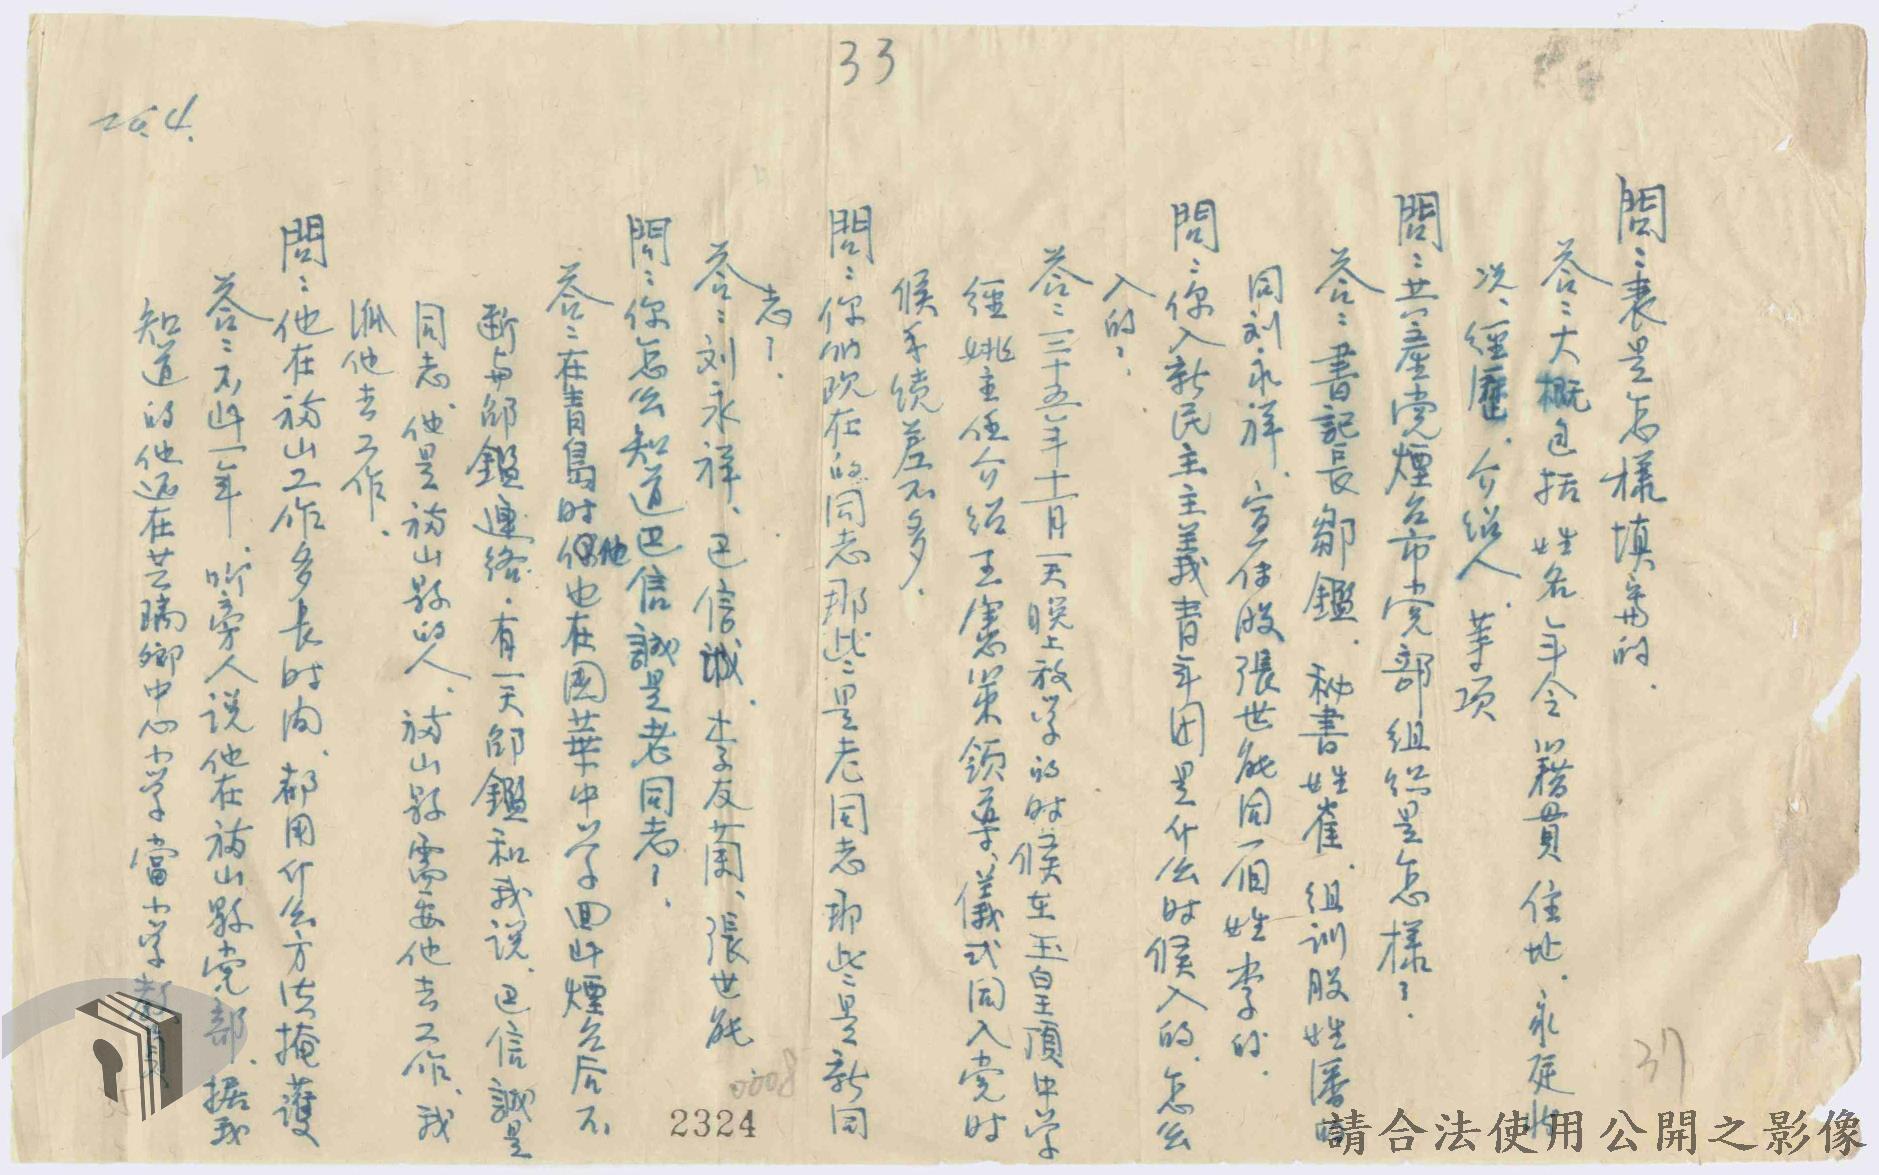 33
26.4.
問：表是怎樣填寫的.
答：大概包括姓名年令籍貫住址.家庭狀
況、經歷.介紹人.等項
問：共產党煙台市党部組织是怎樣？.
答：書記長鄒鑑.秘書姓崔.組训股姓潘的
同刘永祥.宣传股張世能同一個姓李的.
問：你入新民主主義青年团是什么时候入的.怎么
入的？
答：三十五年十一月一天晚上放学的时候在玉皇頂中学
經姚主任介绍王憲策領導、儀式同入党时
候手续差不多.
問：你們现在的同志那些是老同志那些是新同
志？.
答：刘永祥、巴信誠.李友蘭、張世能
問：你怎么知道巴信誠是老同志？.
答：在青島时他也在國華中学回此煙台后不
断与邹鑑連络.有一天邹鑑和我说.巴信誠是
同志.他是福山县的人、福山县需要他去工作、我
派他去工作.
問：他在福山工作多長时间.都用什么方法掩護
答：不止一年.听旁人说他在福山縣党部.据我
知道的他還在芝瑞鄉中心小学當小学教員
37
0008
2324
35
請合法使用公開之影像